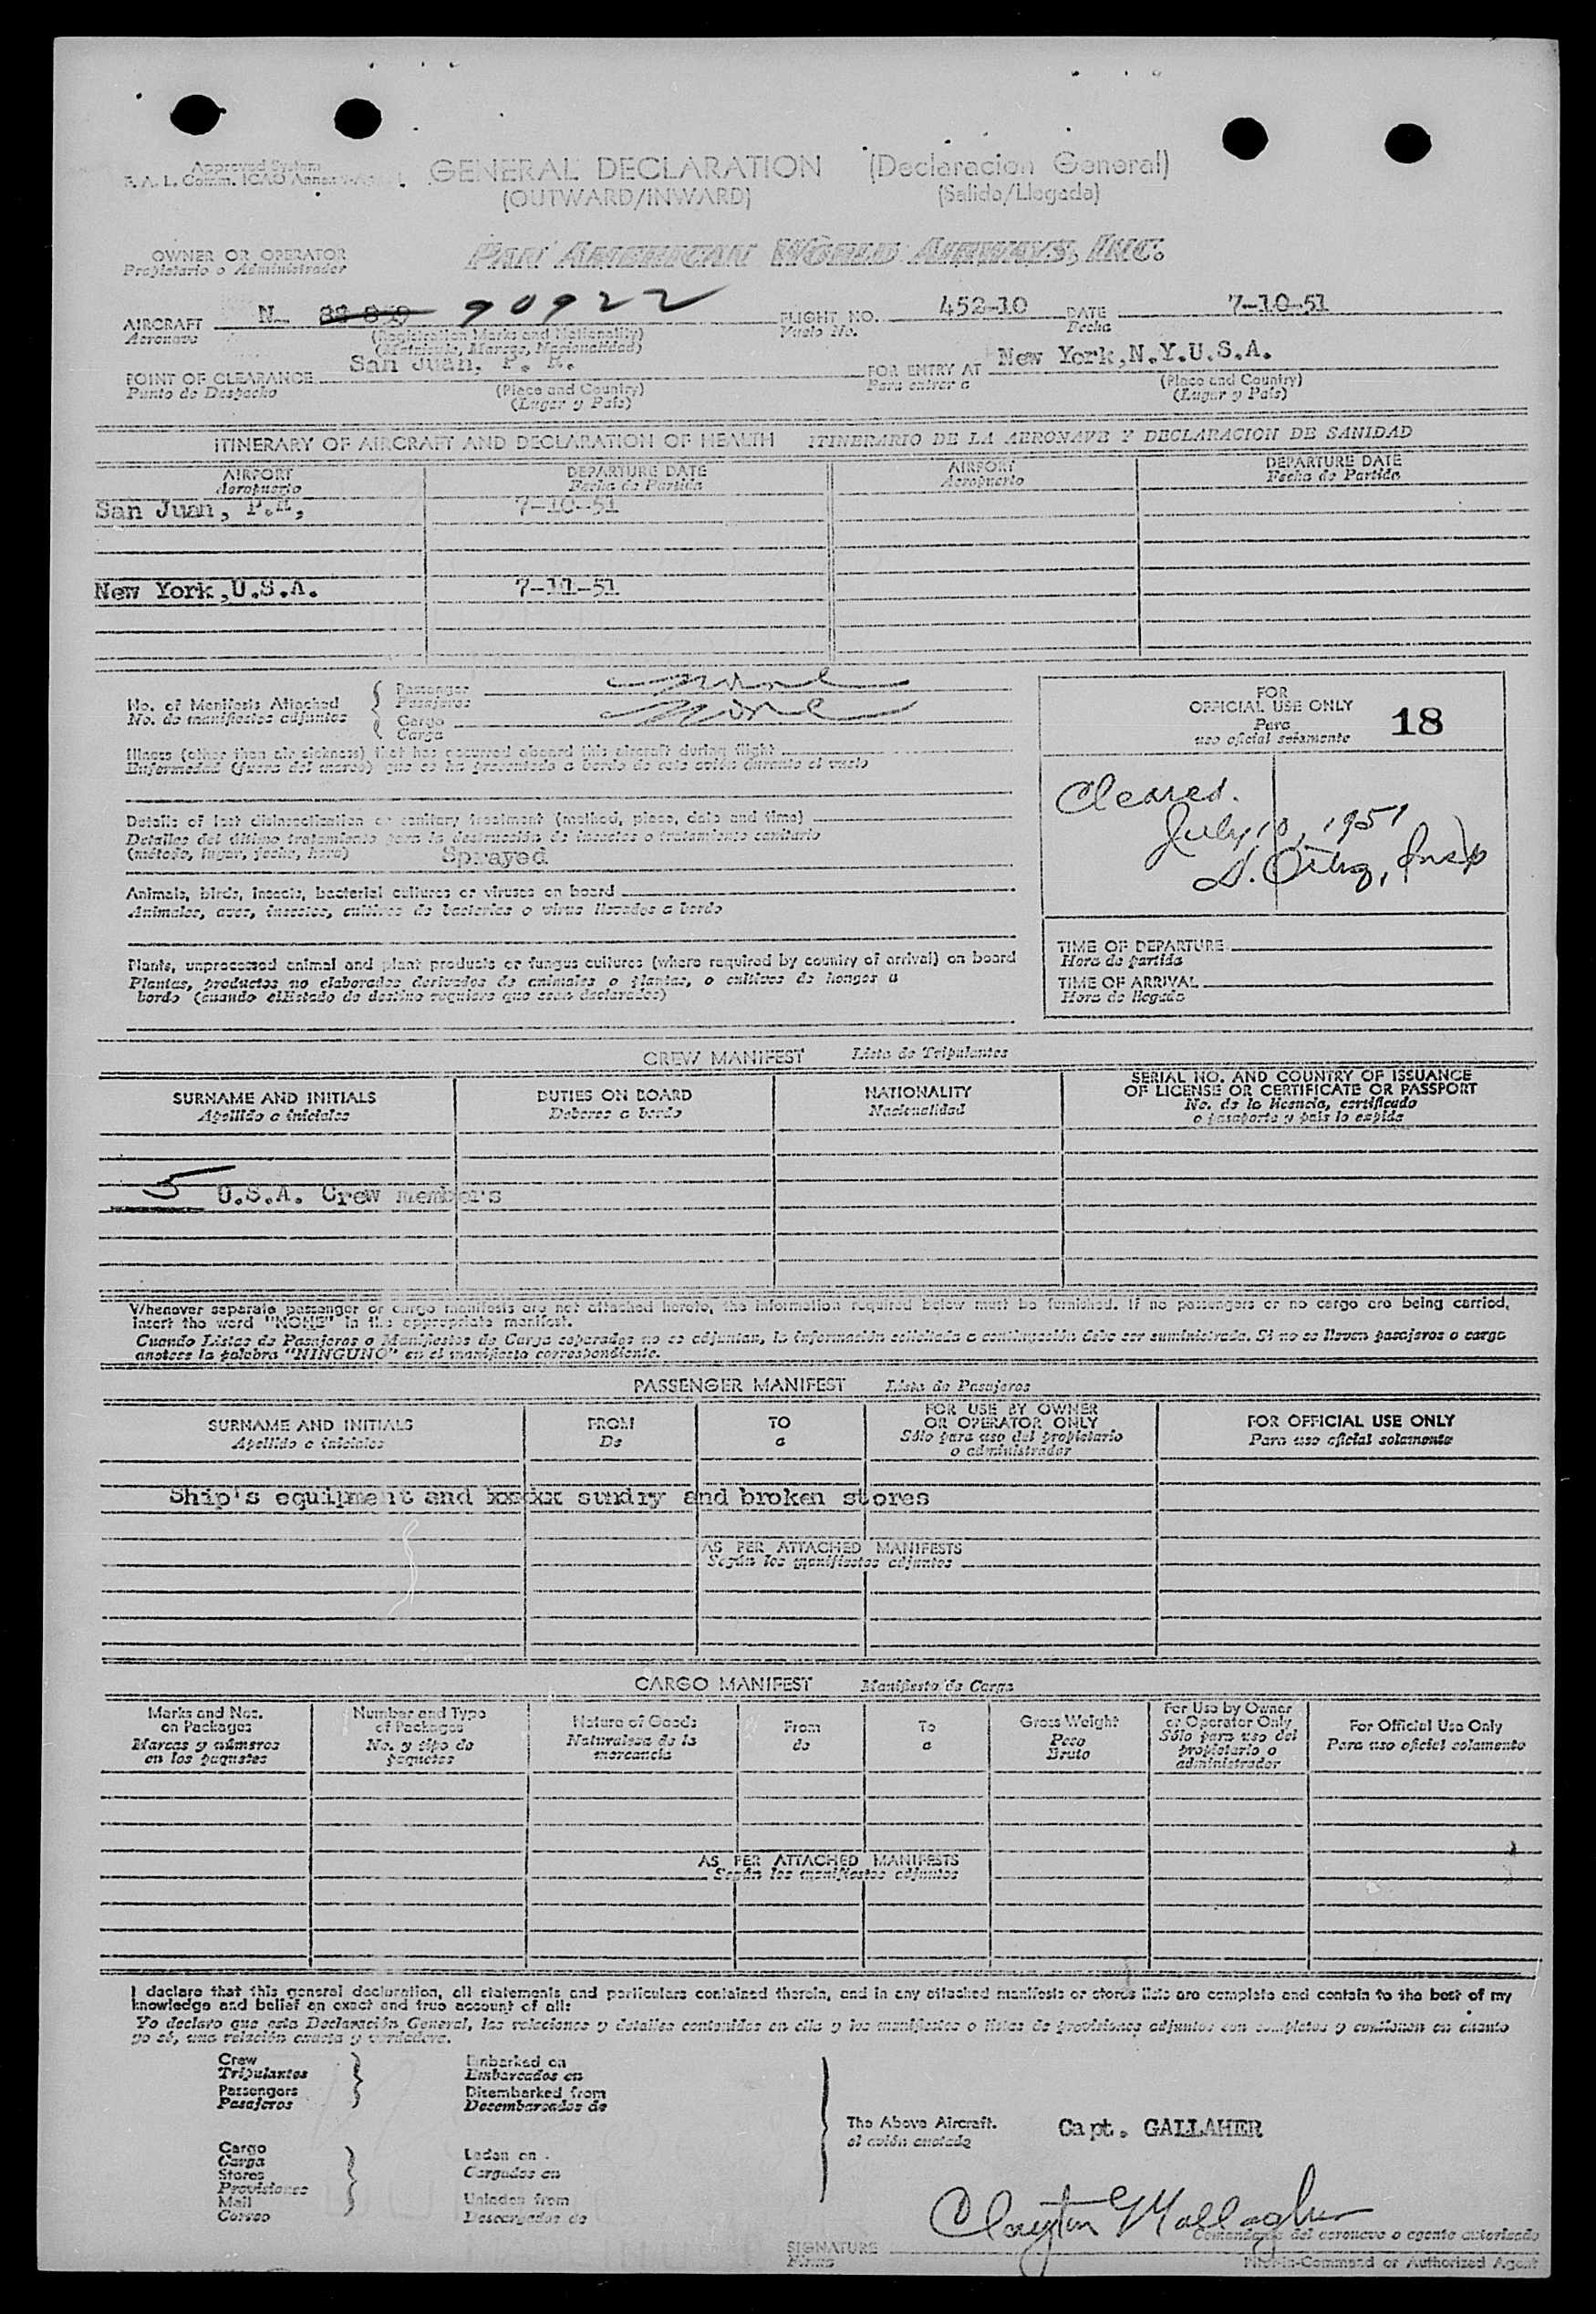 Approved System
F. A. L. Comm. ICAO Annex
GENERAL DECLARATION (Declaracion General)
(OUTWARD/INWARD) (Salida/Llegada)
OWNER OR OPERATOR PAN AMERICAN WORLD AIRWAYS, INC.
Propietario o Administrador
AIRCRAFT N 90922 FLIGHT NO. 452-10 DATE 7-10-51
Aeronave (Registration Marks and Nationality) Vuelo No. Fecha
(Matricula, Marcas, Nacionalidad)
POINT OF CLEARANCE San Juan, P. R. FOR ENTRY AT New York,N.Y.U.S.A.
Punto de Despacho (Place and Country) Para entrar a (Place and Country)
(Lugar y País) (Lugar y País)
ITINERARY OF AIRCRAFT AND DECLARATION OF HEALTH ITINERARIO DE LA AERONAVE Y DECLARACION DE SANIDAD
AIRPORT DEPARTURE DATE AIRPORT DEPARTURE DATE
Aeropuerto Fecha de Partida Aeropuerto Fecha de Partida
San Juan, P.R, 7-10-51
New York,U.S.A. 7-11-51
No. of Manifests Attached Passenger None
No. de manifiestos adjuntos Pasajeros
Cargo None
Carga
FOR
OFFICIAL USE ONLY
Para
uso oficial solamente
18
Illness (other than air sickness) that has occurred aboard this aircraft during flight
Enfermedad (fuera del mareo) que se ha presentado a bordo de este avión durante el vuelo
Cleared.
July 10, 1951
Details of last disinsectization or sanitary treatment (method, place, date and time)
Detalles del último tratamiento para la destrucción de insectos o tratamiento sanitario
(método, lugar, fecha, hora) Sprayed
Animals, birds, insects, bacterial cultures or viruses on board
Animales, aves, insectos, cultivos de bacterias o virus llevados a bordo
TIME OF DEPARTURE
Hora de partida
Plants, unprocessed animal and plant products or fungus cultures (where required by country of arrival) on board
Plantas, productos no elaborados derivados de animales o plantas, o cultivos de hongos a
bordo (cuando elEstado de destino requiere que sean declarados)
TIME OF ARRIVAL
Hora de llegada
CREW MANIFEST Lista de Tripulantes
SURNAME AND INITIALS DUTIES ON BOARD NATIONALITY SERIAL NO. AND COUNTRY OF ISSUANCE
OF LICENSE OR CERTIFICATE OR PASSPORT
Apellido o iniciales Deberes a bordo Nacionalidad No. de la licencia, certificado
o pasaporte y pais lo expide
5 U.S.A. Crew members
Whenever separate passenger or cargo manifests are not attached hereto, the information required below must be furnished. If no passengers or no cargo are being carried,
insert the word "NONE" in the appropriate manifest.
Cuando Listas de Pasajeros o Manifiestos de Carga separados no se adjuntan, la información solicitada a continuación debe ser suministrada. Si no se llevan pasajeros o carga
anotese la palabra "NINGUNO" en el manifiesto correspondiente.
PASSENGER MANIFEST Lista de Pasajeros
SURNAME AND INITIALS FROM TO FOR USE BY OWNER
OR OPERATOR ONLY FOR OFFICIAL USE ONLY
Apellido o iniciales De a Sólo para uso del propietario
o administrador Para uso oficial solamente
Ship's equipment and sundry and broken stores
AS PER ATTACHED MANIFESTS
Según los manifiestos adjuntos
CARGO MANIFEST Manifiesto de Carga
Marks and Nos.
on Packages
Marcas y números
en los paquetes
Number and Type
of Packages
No. y tipo de
paquetes
Nature of Goods
Naturaleza de la
mercancía
From
de
To
a
Gross Weight
Peso
Bruto
For Use by Owner
or Operator Only
Sólo para uso del
propietario o
administrador
For Official Use Only
Para uso oficial solamente
AS PER ATTACHED MANIFESTS
Según los manifiestos adjuntos
I declare that this general declaration, all statements and particulars contained therein, and in any attached manifests or stores lists are complete and contain to the best of my
knowledge and belief an exact and true account of all:
Yo declaro que esta Declaración General, las relaciones y detalles contenidos en ella y los manifiestos o listas de provisiones adjuntos son completos y contienen en cuanto
yo sé, una relación exacta y verdadera.
Crew Embarked on
Tripulantes Embarcados en
Passengers Disembarked from
Pasajeros Desembarcados de
The Above Aircraft. Capt. GALLAHER
el avión anotado
Cargo
Carga Laden on
Stores Cargados en
Provisiones
Mail Unladen from
Correo Descargados de
Clayton Gallagher
Comandante del aeronave o agente autorizado
SIGNATURE
Firma
Pilot-in-Command or Authorized Agent